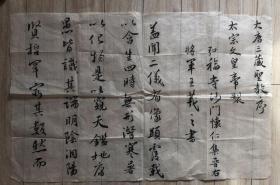 大唐三藏聖教序
太宗文皇帝製
弘福寺沙門懷仁集晉右
將軍王羲之書
蓋聞二儀有像顯覆載
以含生四時無形潛寒暑
以化物是以窺天鑑地庸
愚皆識其端明陰洞陽
賢哲罕窮其數然而